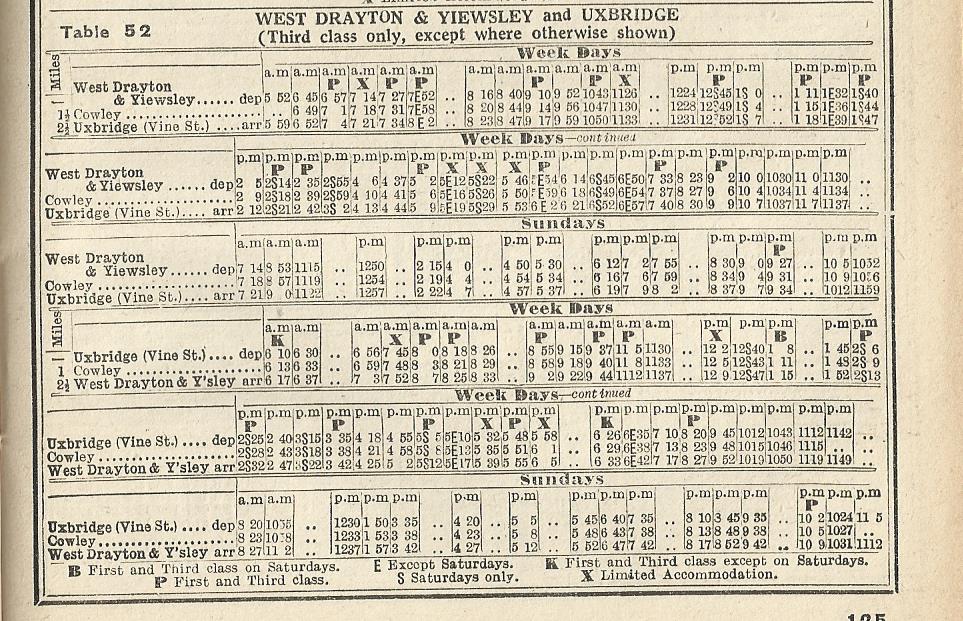 X Limited Accommodation.
Table 52
WEST DRAYTON & YIEWSLEY and UXBRIDGE
(Third class only, except where otherwise shown)
Week Days
Miles a.m a.m a.m a.m a.m a.m a.m a.m a.m a.m a.m a.m p.m p.m p.m p.m p.m p.m
P X P P P X P P P
West Drayton
— & Yiewsley...... dep 5 52 6 45 6 57 7 14 7 27 7E52 .. 8 16 8 40 9 10 9 52 1043 1126 .. 1224 12S45 1S 0 .. 1 11 1E32 1S40
1½ Cowley .............. .. 6 49 7 1 7 18 7 31 7E58 .. 8 20 8 44 9 14 9 56 1047 1130 .. 1228 12S49 1S 4 .. 1 15 1E36 1S44
2½ Uxbridge (Vine St.) ....arr 5 59 6 52 7 4 7 21 7 34 8E 2 .. 8 23 8 47 9 17 9 59 1050 1133 .. 1231 12S52 1S 7 .. 1 18 1E39 1S47
Week Days—continued
West Drayton
& Yiewsley ...... dep 2 5 2S14 2 35 2S55 4 6 4 37 5 2 5E12 5S22 5 46 5E54 6 14 6S45 6E50 7 33 8 23 9 2 10 0 1030 11 0 1130 ..
Cowley .................. 2 9 2S18 2 39 2S59 4 10 4 41 5 6 5E16 5S26 5 50 5E59 6 18 6S49 6E54 7 37 8 27 9 6 10 4 1034 11 4 1134 ..
Uxbridge (Vine St.).... arr 2 12 2S21 2 42 3S 2 4 13 4 44 5 9 5E19 5S29 5 53 6E 2 6 21 6S52 6E57 7 40 8 30 9 9 10 7 1037 11 7 1137 ..
Sundays
a.m a.m a.m p.m p.m p.m p.m p.m p.m p.m p.m p.m p.m p.m p.m p.m
P
West Drayton
& Yiewsley...... dep 7 14 8 53 1115 .. 1250 .. 2 15 4 0 .. 4 50 5 30 .. 6 12 7 2 7 55 .. 8 30 9 0 9 27 .. 10 5 1052
Cowley .................. 7 18 8 57 1119 .. 1254 .. 2 19 4 4 .. 4 54 5 34 .. 6 16 7 6 7 59 .. 8 34 9 4 9 31 .. 10 9 1056
Uxbridge (Vine St.).... arr 7 21 9 0 1122 .. 1257 .. 2 22 4 7 .. 4 57 5 37 .. 6 19 7 9 8 2 .. 8 37 9 7 9 34 .. 1012 1159
Week Days
Miles a.m a.m a.m a.m a.m a.m a.m a.m a.m a.m a.m a.m p.m p.m p.m p.m p.m
K X P P P P P X B P
— Uxbridge (Vine St.).... dep 6 10 6 30 .. 6 56 7 45 8 0 8 18 8 26 .. 8 55 9 15 9 37 11 5 1130 .. 12 2 12S40 1 8 .. 1 45 2S 6
1 Cowley .................. 6 13 6 33 .. 6 59 7 48 8 3 8 21 8 29 .. 8 58 9 18 9 40 11 8 1133 .. 12 5 12S43 1 11 .. 1 48 2S 9
2½ West Drayton & Y'sley arr 6 17 6 37 .. 7 3 7 52 8 7 8 25 8 33 .. 9 2 9 22 9 44 1112 1137 .. 12 9 12S47 1 15 .. 1 52 2S13
Week Days—continued
Uxbridge (Vine St.) .... dep 2S25 2 40 3S15 3 35 4 18 4 55 5S 5 5E10 5 32 5 48 5 58 .. 6 26 6E35 7 10 8 20 9 45 1012 1043 1112 1142 ..
Cowley .................. 2S28 2 43 3S18 3 38 4 21 4 58 5S 8 5E13 5 35 5 51 6 1 .. 6 29 6E38 7 13 8 23 9 48 1015 1046 1115 .. ..
West Drayton & Y'sley arr 2S32 2 47 3S22 3 42 4 25 5 2 5S12 5E17 5 39 5 55 6 5 .. 6 33 6E42 7 17 8 27 9 52 1019 1050 1119 1149 ..
Sundays
a.m a.m p.m p.m p.m p.m p.m p.m p.m p.m p.m p.m p.m p.m p.m p.m
P
Uxbridge (Vine St.) .... dep 8 20 1055 .. 1230 1 50 3 35 .. 4 20 .. 5 5 .. 5 45 6 40 7 35 .. 8 10 3 45 9 35 .. 10 2 1024 11 5
Cowley .................. 8 23 1058 .. 1233 1 53 3 38 .. 4 23 .. 5 8 .. 5 48 6 43 7 38 .. 8 13 8 48 9 38 .. 10 5 1027 ..
West Drayton & Y'sley arr 8 27 11 2 .. 1237 1 57 3 42 .. 4 27 .. 5 12 .. 5 52 6 47 7 42 .. 8 17 8 52 9 42 .. 10 9 1031 1112
B First and Third class on Saturdays. E Except Saturdays. K First and Third class except on Saturdays.
P First and Third class. S Saturdays only. X Limited Accommodation.